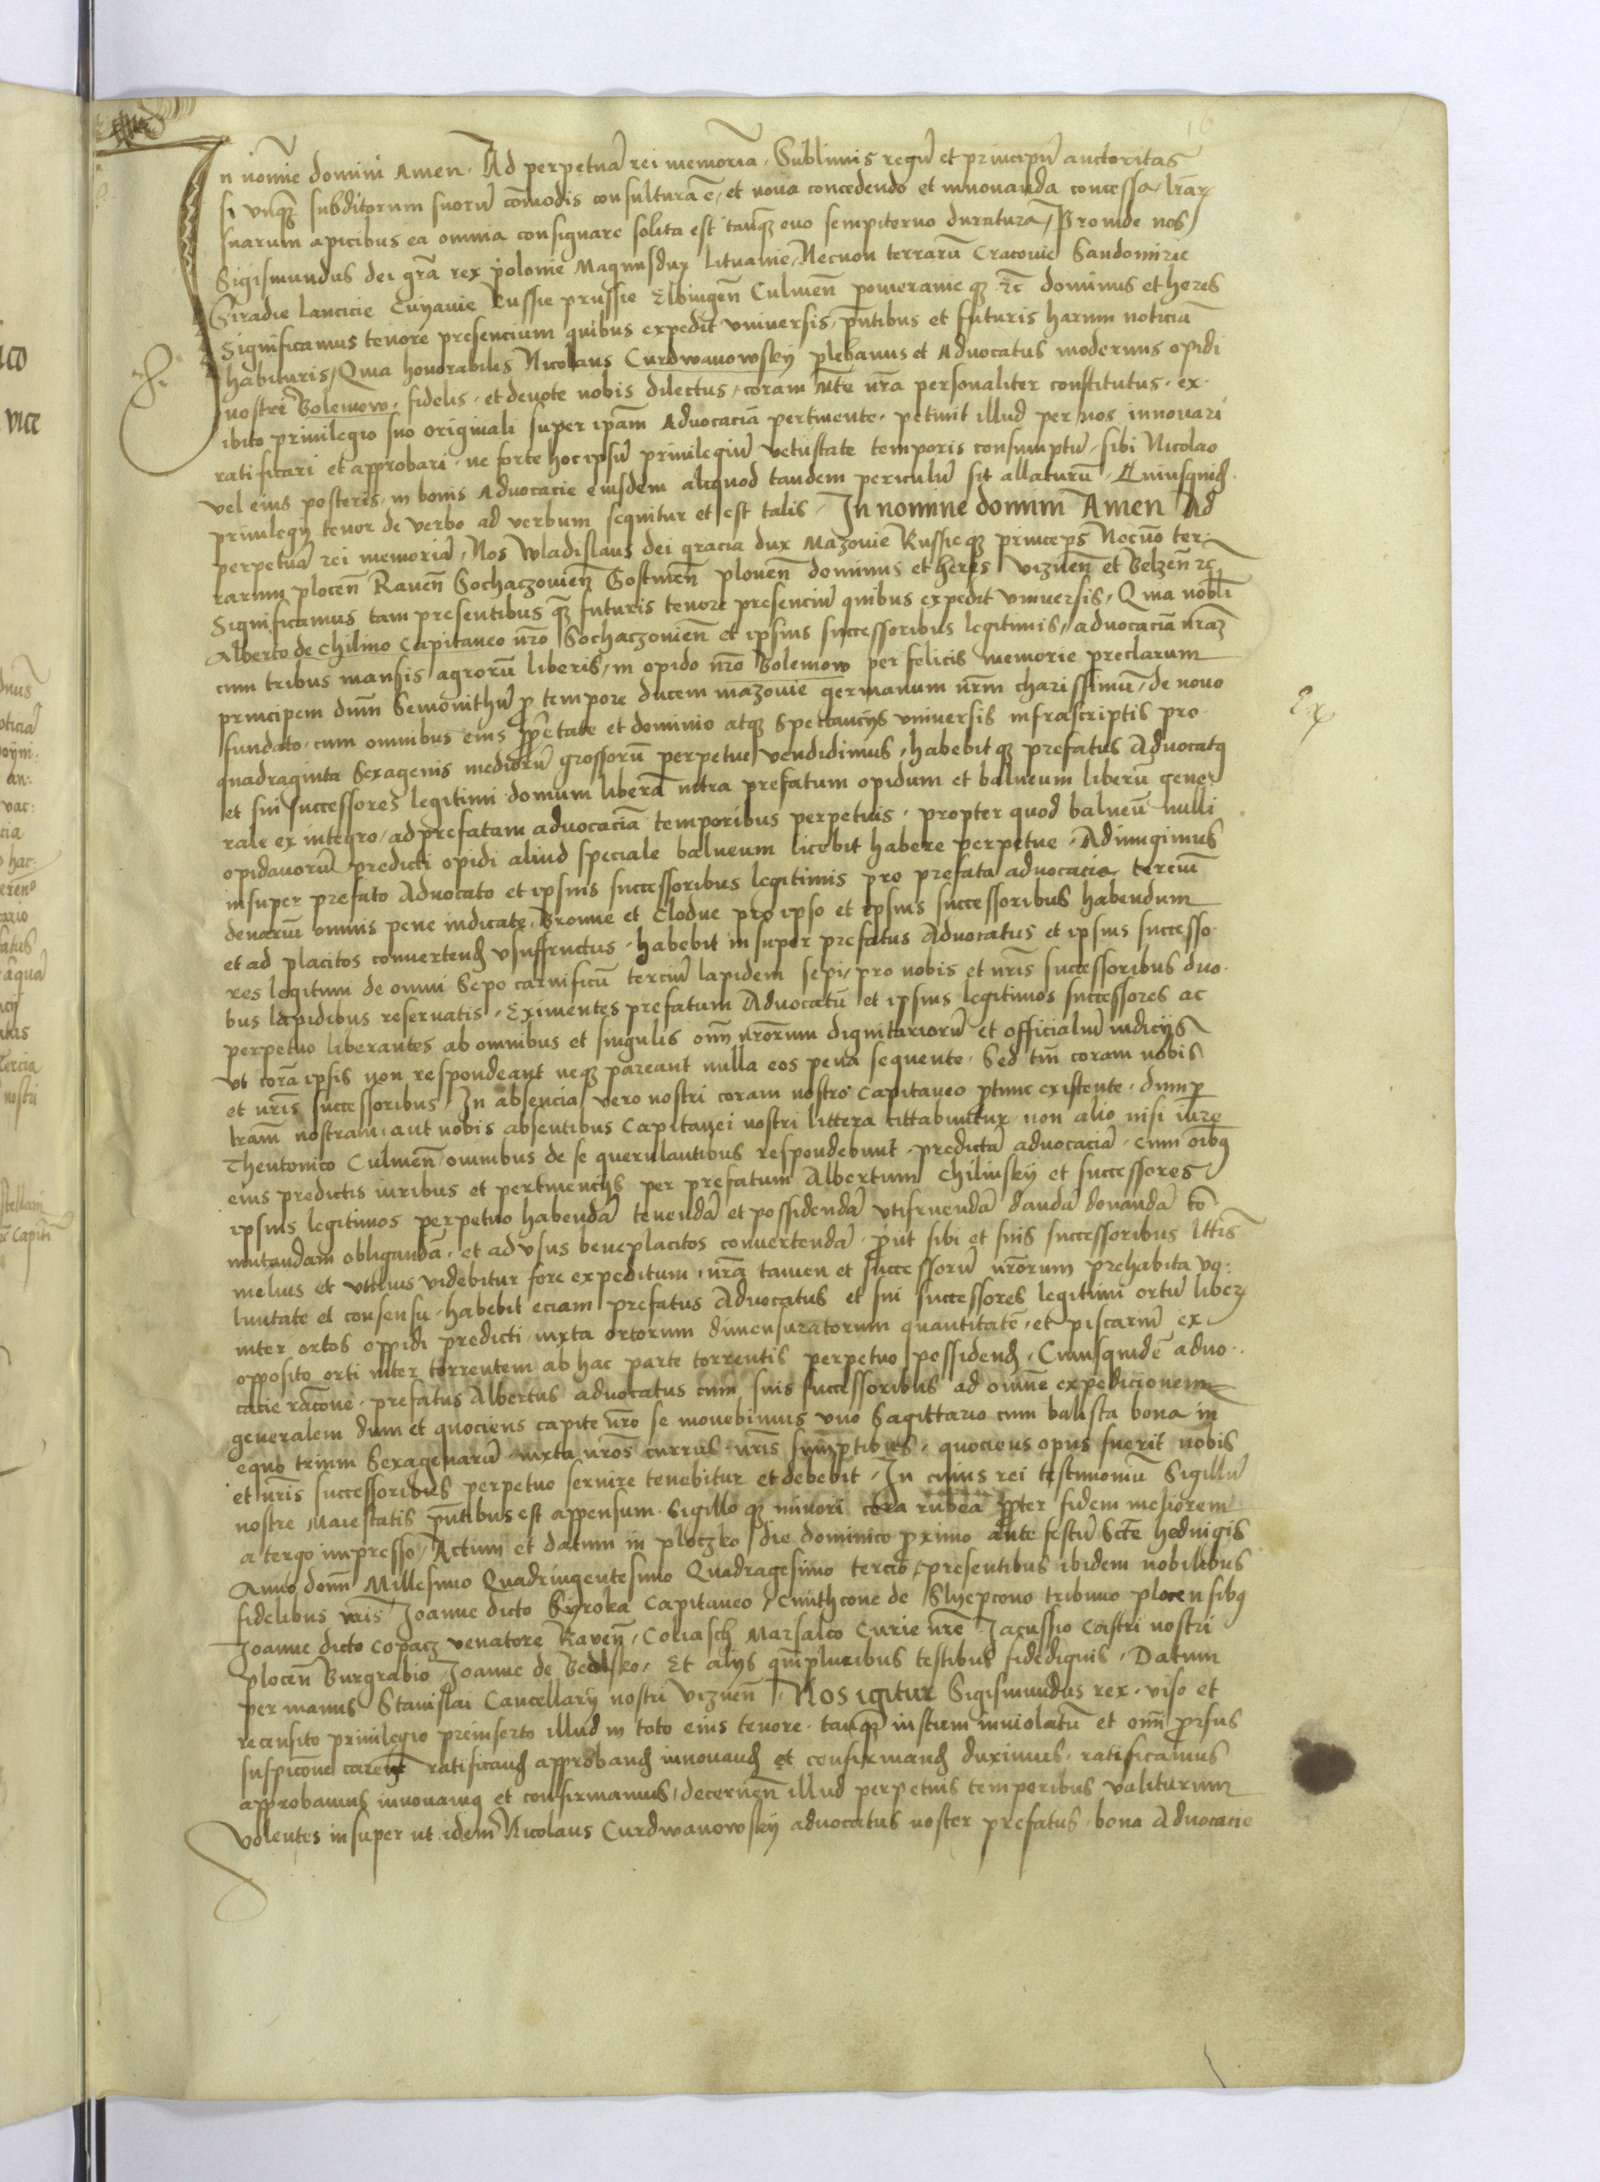 In noie domini Amen. Ad perpetuā rei memoriā. Sublimis regū et principū auctoritas
si unq̃ subditorum suorū cōmodis consultura ē, et nova concedendo et innovanda concessa, lrarꝝ
suarum apicibus ea omnia consignare solita est tanq̃ evo sempiterno duratura, Proinde nos
Sigismundus dei grā rex polonie Magnusdux lituanie, Necnon terrarū Cracovie Sandomirie
Siradie lancicie Cuyavie Russie prussie Elbingeñ Culmeñ pomeranieqꝫ ꝛc̄ dominus et heres
Significamus tenore presencium quibus expedit universis, pñtibus et futuris harum noticiā
habituris, Quia honorabilis Nicolaus Curdwanowsky plebanus et Advocatus modernus opidi
nostri Bolemow, fidelis et devote nobis dilectus, coram Mte nra personaliter constitutus, ex-
ibito privilegio suo originali super ipam Advocaciā pertinente, petivit illud per nos innovari
ratificari et approbari, ne forte hoc ipsū privilegiū vetustate temporis consumptū, sibi Nicolao
vel eius posteris, in bonis Advocacie eiusdem aliquod tandem periculū sit allaturū. Cuiusquid̄
privilegy tenor de verbo ad verbum sequitur et est talis. In nomine domini Amen Ad
perpetuā rei memoriā, Nos Wladislaus dei gracia dux Mazovie Russieqꝫ princeps Necnō ter-
rarum ploceñ Raveñ Sochaczovieñ Gostineñ ploneñ dominus et heres vizneñ et Belzeñ ꝛc̄
Significamus tam presentibus q̃ futuris tenore presenciū quibus expedit universis, Quia nobli
Alberto de Chilino Capitaneo nro Sochaczovieñ et ipsius successoribus legitimis, advocaciā nraꝫ
cum tribus mansis agrorū liberis, in opido nro Bolemow per felicis memorie preclarum
principem dnm Semovithū ꝓ tempore ducem mazovie germanum nrm charissimū, de novo
fundato, cum omnibus eius ꝓprietate et dominio atqꝫ spectancijs universis infrascriptis pro
quadraginta Sexagenis mediorū grossorū perpetue vendidimus, habebitqꝫ prefatus Advocatꝯ
et sui successores legitimi domum liberā intra prefatum opidum et balneum liberū gene-
rale ex integro, ad prefatam advocaciā temporibus perpetuis, propter quod balneū nulli
opidanorū predicti opidi aliud speciale balneum licebit habere perpetue, Adiungimus
insuper prefato Advocato et ipsius successoribus legitimis pro prefata advocacia terciū
denariū omnis pene iudicate, Bronne et Clodne pro ipso et ipsius successoribus habendum
et ad placitos convertend̄ usuffructus, habebit insuper prefatus Advocatus et ipsius successo-
res legitimi de omni Sepo carnificū terciū lapidem sepi, pro nobis et nris successoribus duo-
bus lapidibus reservatis, Eximentes prefatum Advocatū et ipsius legitimos successores ac
perpetuo liberantes ab omnibus et singulis oīm nrorum dignitariorū et officialiū iudicijs
Ut corā ipsis non respondeant neqꝫ pareant nulla eos pena sequente, Sed tm coram nobis
et nris successoribus, In absencia vero nostri coram nostro Capitaneo ꝓtunc existente, dum ꝑ
lram nostram aut nobis absentibus Capitanei nostri littera cittabuntur, non alio nisi iure
Theutonico Culmeñ omnibus de se querulantibus respondebunt, predictā advocaciā, cum oībꝯ
eius predictis iuribus et pertinencijs per prefatum Albertum Chilinsky et successores
ipsius legitimos perpetuo habendā tenendā et possidendā utifruendā dandā donandā cō-
mutandam obligandā, et ad usus beneplacitos convertendā, prout sibi et suis successoribus lttis
melius et utilius videbitur fore expeditum, nra tamen et successorū nrorum prehabita vo-
luntate et consensu, habebit eciam prefatus Advocatus et sui successores legitimi ortū liberꝫ
inter ortos oppidi predicti, iuxta ortorum dimensuratorum quantitatē, et piscariū ex
opposito orti inter torrentem ab hac parte torrentis perpetuo possidend̄, Cuiusquidē advo-
cacie racōne, prefatus Albertus advocatus cum suis successoribus ad omnē expedicionem
generalem dum et quociens capite nro se movebimus uno Sagittario cum balista bona in
equo trium Sexagenarū iuxta nros currus, nris sumptibus, quociens opus fuerit nobis
et nris successoribus perpetuo servire tenebitur et debebit, In cuius rei testimoniū Sigillū
nostre Maiestatis pñtibus est appensum, Sigilloqꝫ minori cera rubea ꝓpter fidem meliorem
a tergo impresso, Actum et datum in ploczko die dominico proximo ante festū Scte hedvigis
Anno domi Millesimo Quadringentesimo Quadragesimo tercio, presentibus ibidem nobilibus
fidelibus nris Joanne dicto Syroka Capitaneo, Cmithcone de Slyepcono tribuno plocensibꝯ
Joanne dicto Copacz venatore Raveñ, Coliasch Marsalco Curie nre Jacussio Castri nostri
ploceñ Burgrabio Joanne de Bedlko, Et alijs qmpluribus testibus fidedignis, Datum
per manus Stanislai Cancellarij nostri vizneñ, Nos igitur Sigismundus rex, viso et
recensito privilegio preinserto illud in toto eius tenore, tanq̃ iustum inviolatū et oīm prorsus
suspicōne careñt ratificand̄ approband̄ innovand̄ et confirmand̄ duximus, ratificamus
approbamus innovamꝯ et confirmamus, decerneñ illud perpetuis temporibus valiturum
Volentes insuper ut idem Nicolaus Curdwanowsky advocatus noster prefatus, bona Advocacie